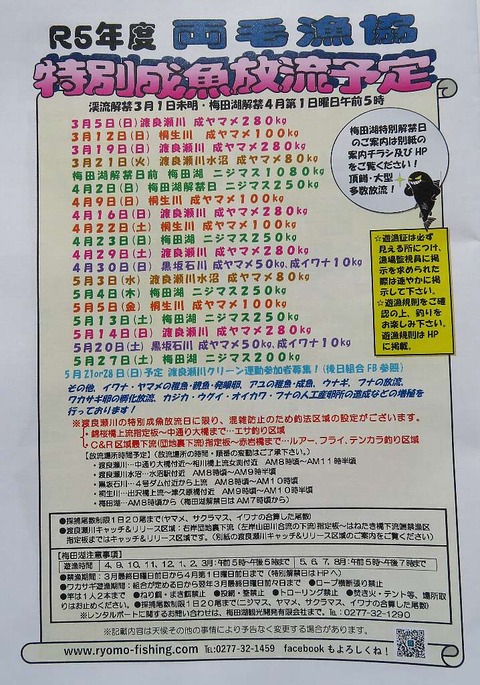 R5年度 両毛漁協
特別成魚放流予定
渓流解禁3月1日未明・梅田湖解禁4月第1日曜日午前5時
3月5日(日)渡良瀬川 成ヤマメ280kg
3月12日(日) 桐生川 成ヤマメ100kg
3月19日(日) 渡良瀬川 成ヤマメ280kg
3月21日(火) 渡良瀬川水沼 成ヤマメ80kg
梅田湖解禁日前 梅田湖 ニジマス1080kg
4月2日(日) 梅田湖解禁日 ニジマス250kg
4月9日(日) 桐生川 成ヤマメ100kg
4月16日(日) 渡良瀬川 成ヤマメ280kg
4月22日(土) 桐生川 成ヤマメ100kg
4月23日(日) 梅田湖 ニジマス250kg
4月29日(土) 渡良瀬川 成ヤマメ280kg
4月30日(日) 黒坂石川 成ヤマメ50kg、成イワナ10kg
5月3日(水) 渡良瀬川水沼 成ヤマメ80kg
5月4日(木) 梅田湖 ニジマス250kg
5月5日(金) 桐生川 成ヤマメ100kg
5月13日(土) 梅田湖 ニジマス250kg
5月14日(日) 渡良瀬川 成ヤマメ280kg
5月20日(土) 黒坂石川 成ヤマメ50kg、成イワナ10kg
5月27日(土) 梅田湖 ニジマス200kg
5月21or28日(日)予定 渡良瀬川クリーン運動参加者募集!(後日組合FB参照)
梅田湖特別解禁日
のご案内は別紙の
案内チラシ及びHP
をご覧ください!
頂鱒・大型
多数放流!
☆遊漁証は必ず
見える所につけ、
漁場監視員に掲
示を求められた
際は速やかに掲
示して下さい。
☆遊漁規則をご確
認の上、釣りを
お楽しみ下さい。
遊漁規則はHP
に掲載。
その他、イワナ・ヤマメの稚魚・親魚・発眼卵、アユの稚魚・成魚、ウナギ、フナの放流、
ワカサギ卵の孵化放流、カジカ・ウグイ・オイカワ・フナの人工産卵所の造成などの増殖を
行っております!
※渡良瀬川の特別成魚放流日に限り、混雑防止のため釣法区域の設定がございます。
・錦桜橋上流指定板~中通り大橋まで…エサ釣り区域
・C&R区域最下流(団地裏下流)指定板~赤岩橋まで…ルアー、フライ、テンカラ釣り区域
【放流場所時間予定】(放流場所の時間・順番の変動はご了承下さい。)
・渡良瀬川…中通り大橋付近~相川橋上流女渕付近 AM8時~AM11時半頃
・渡良瀬川水沼…水沼駅付近 AM8時~AM9時半頃
・黒坂石川…4号ダム付近から上流 AM8時~AM10時頃
・桐生川…出沢橋上流~津久原橋付近 AM9時~AM10時半頃
・梅田湖…AM8時頃から(梅田湖解禁日はAM7時頃から)
●採捕尾数制限1日20尾まで(ヤマメ、サクラマス、イワナの合算した尾数)
●渡良瀬川キャッチ&リリース区域:右岸団地裏下流(左岸山田川合流の下流)指定板~はねたき橋下流端禁漁区
指定板まではキャッチ&リリース区域です。(別紙の渡良瀬川キャッチ&リリース区域のご案内をご覧ください)
【梅田湖注意事項】
遊漁時間 4、9、10、11、12、1、2、3月:午前5時~午後5時まで 5、6、7、8月:午前5時~午後7時まで
●禁漁期間:3月最終日曜日前日から4月第1日曜日前日まで(特別解禁日はHPへ)
●ワカサギ遊漁期間:組合が定める日から翌年3月最終日曜日前々日まで ●ロープ横断張り禁止
●竿は1人2本まで ●ねり餌・まき餌禁止 ●投網・簗禁止 ●トローリング禁止 ●焚き火・テント等、場所取
りはお止めください。●採捕尾数制限1日20尾まで(ニジマス、ヤマメ、サクラマス、イワナの合算した尾数)
※レンタルボートに関するお問い合わせは、梅田湖観光開発有限会社まで。TEL:0277-32-1290
※記載内容は天候その他の事情により予告なく変更する場合があります。
www.ryomo-fishing.com TEL:0277-32-1459 facebookもよろしくね!